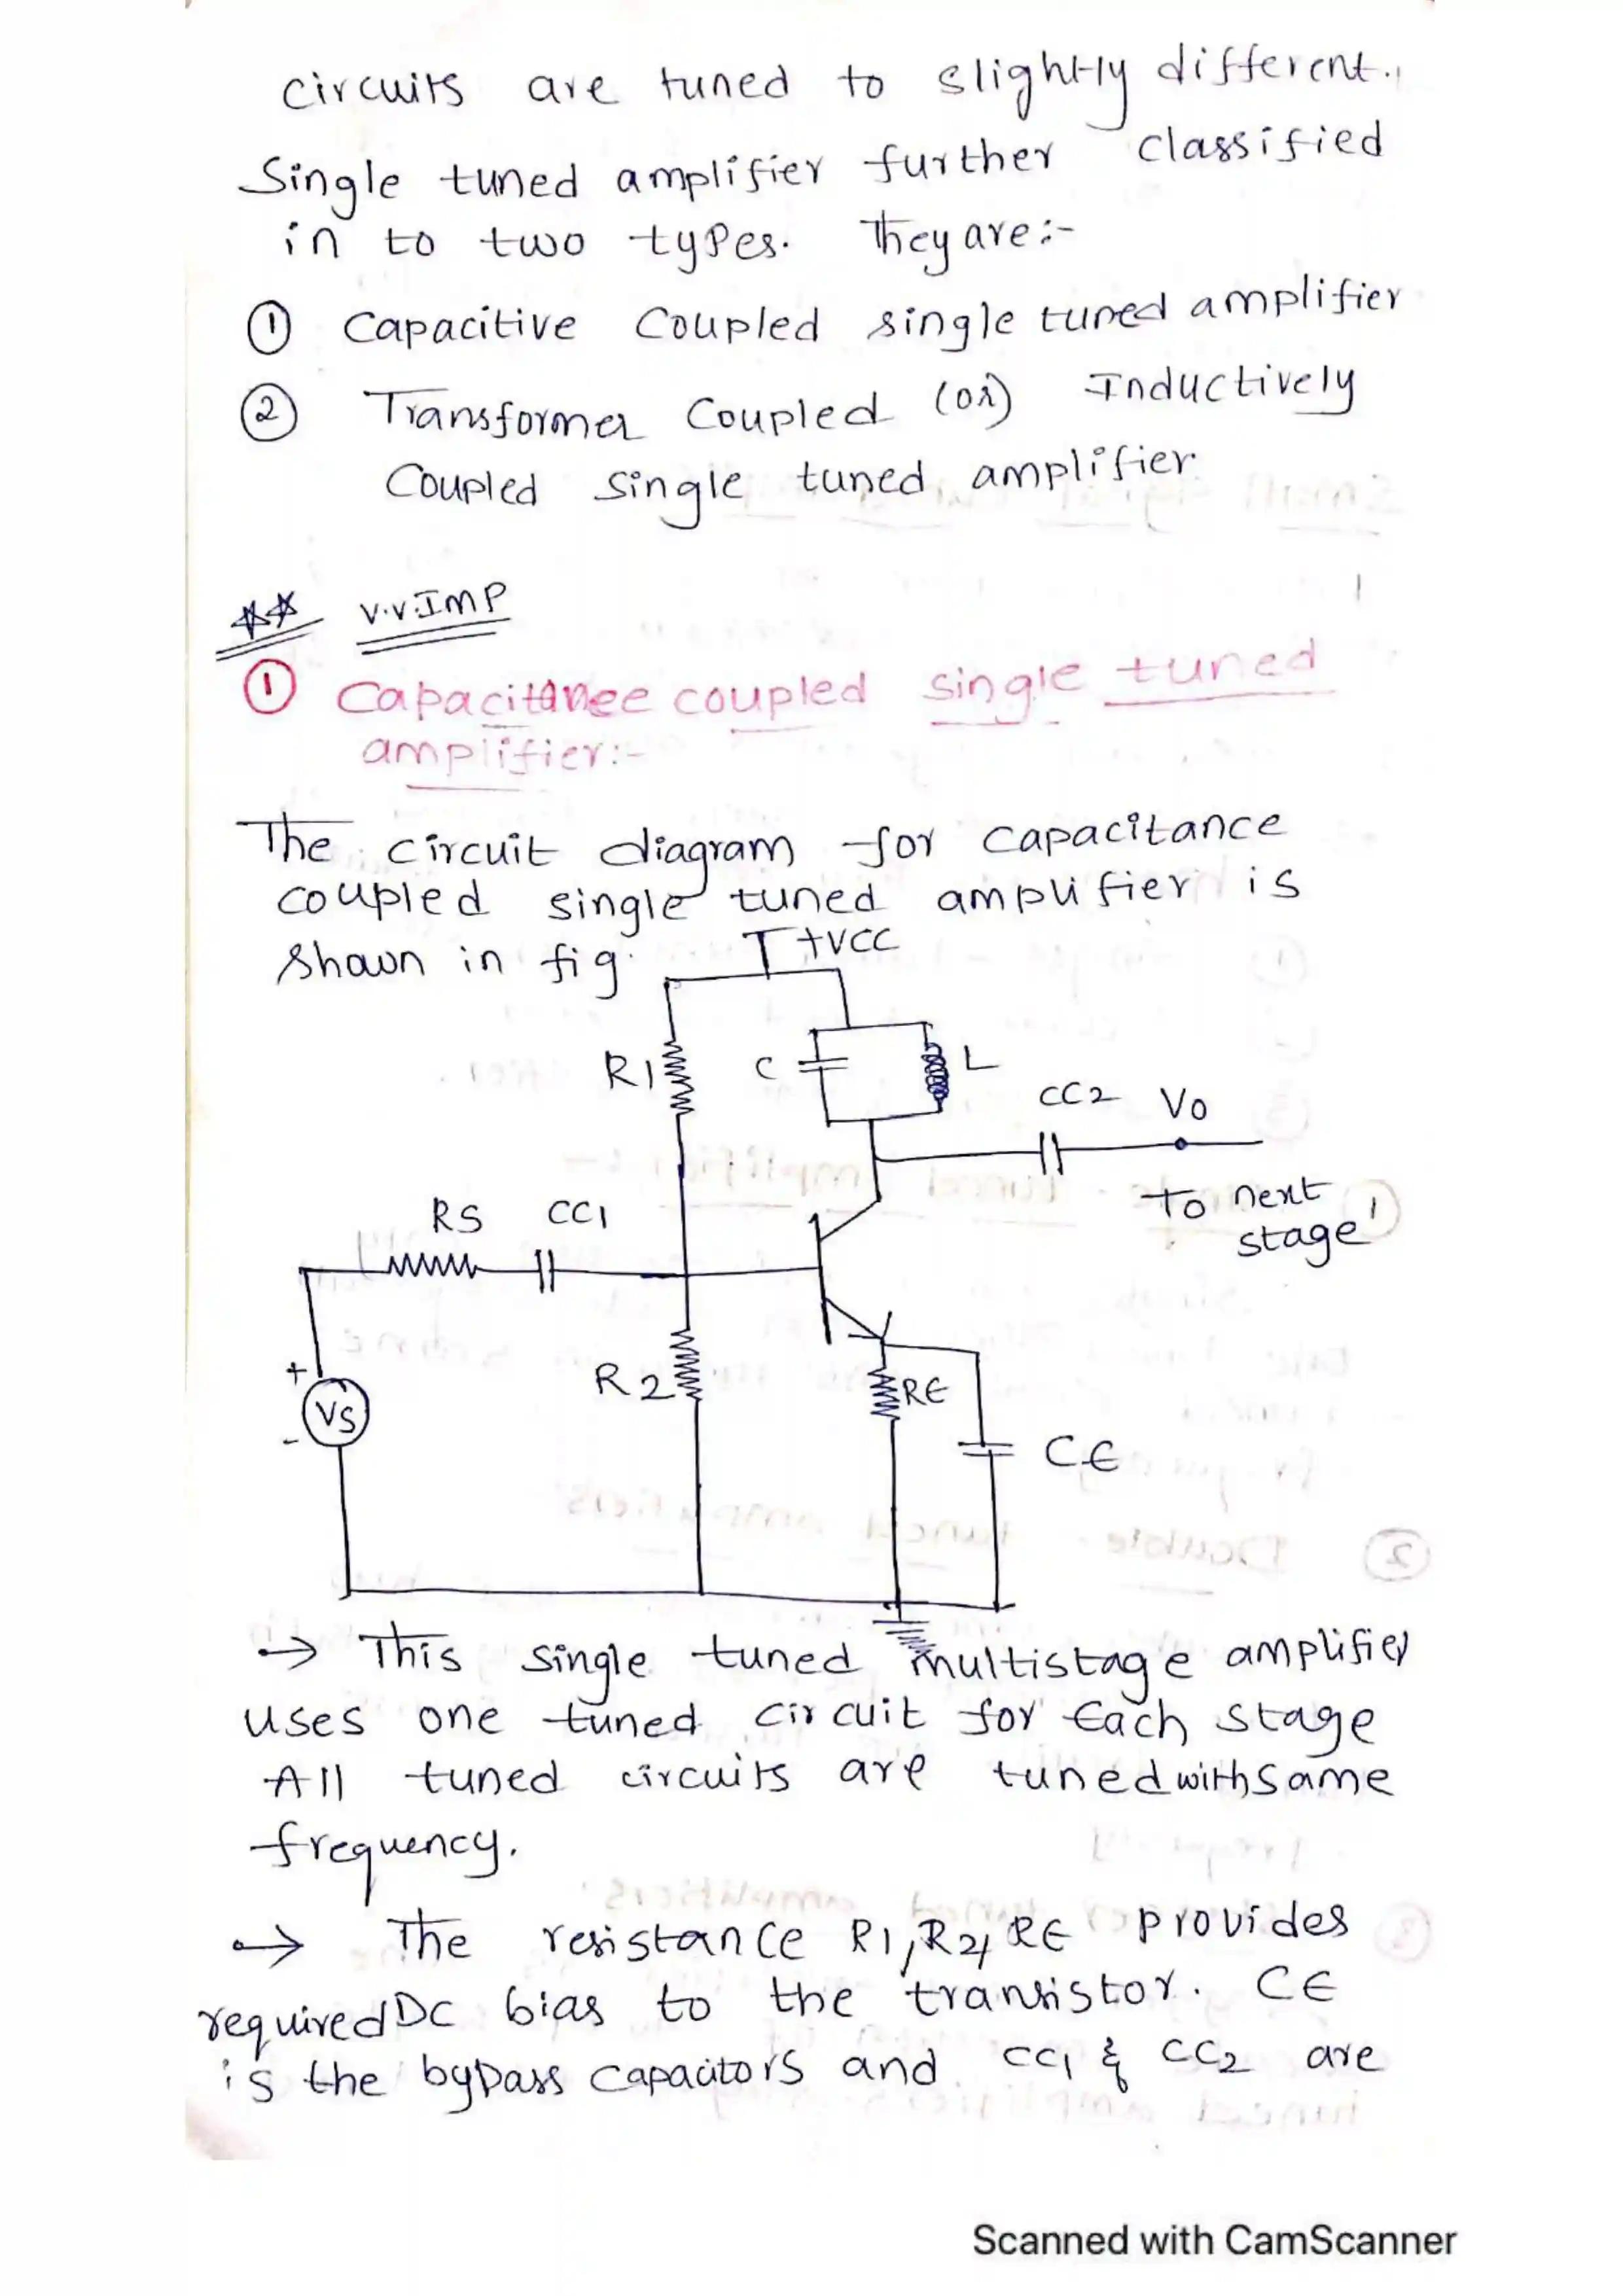 circuits are tuned to slightly different.
Single tuned amplifier further classified
in to two types. They are:-
① Capacitive Coupled single tuned amplifier
② Transformer Coupled (or) Inductively
Coupled single tuned amplifier
** V.V.IMP
① Capacitance coupled single tuned
amplifier:-
The circuit diagram for capacitance
coupled single tuned amplifier is
shown in fig.
+VCC
R1
C
L
CC2
Vo
To next
stage
RS
CC1
+
VS
-
R2
RE
CE
→ This single tuned multistage amplifier
uses one tuned circuit for Each stage
All tuned circuits are tuned with same
frequency.
→ The resistance R1, R2, RE provides
required DC bias to the transistor. CE
is the bypass capacitors and CC1 & CC2 are
Scanned with CamScanner